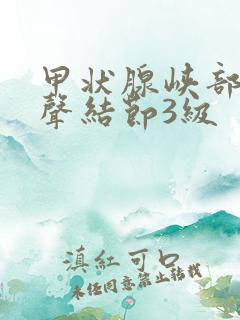 甲状腺峡部
聲結節3級
滇紅可口
未经同意禁止转载